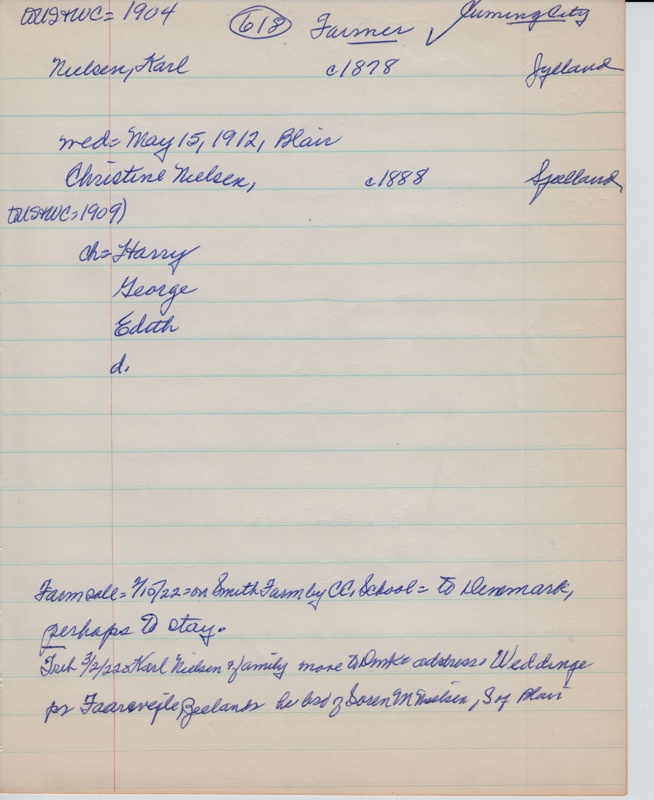 to US & WC = 1904 618 Farmer ✓ Cuming City
Nielsen, Karl c1878 Jylland
med = May 15, 1912, Blair
Christine Nielsen, c1888 Sjælland
to US & WC = 1909)
ch = Harry
George
Edith
d.
Farm sale = /22 = on Smith Farm by CC, School = to Denmark,
perhaps to stay.
3/2/22 Karl Nielsen & family move to Dmk = address = Weddinge
pr Faarevejle Zeeland he bro of Soren M Nielsen, S of Blair